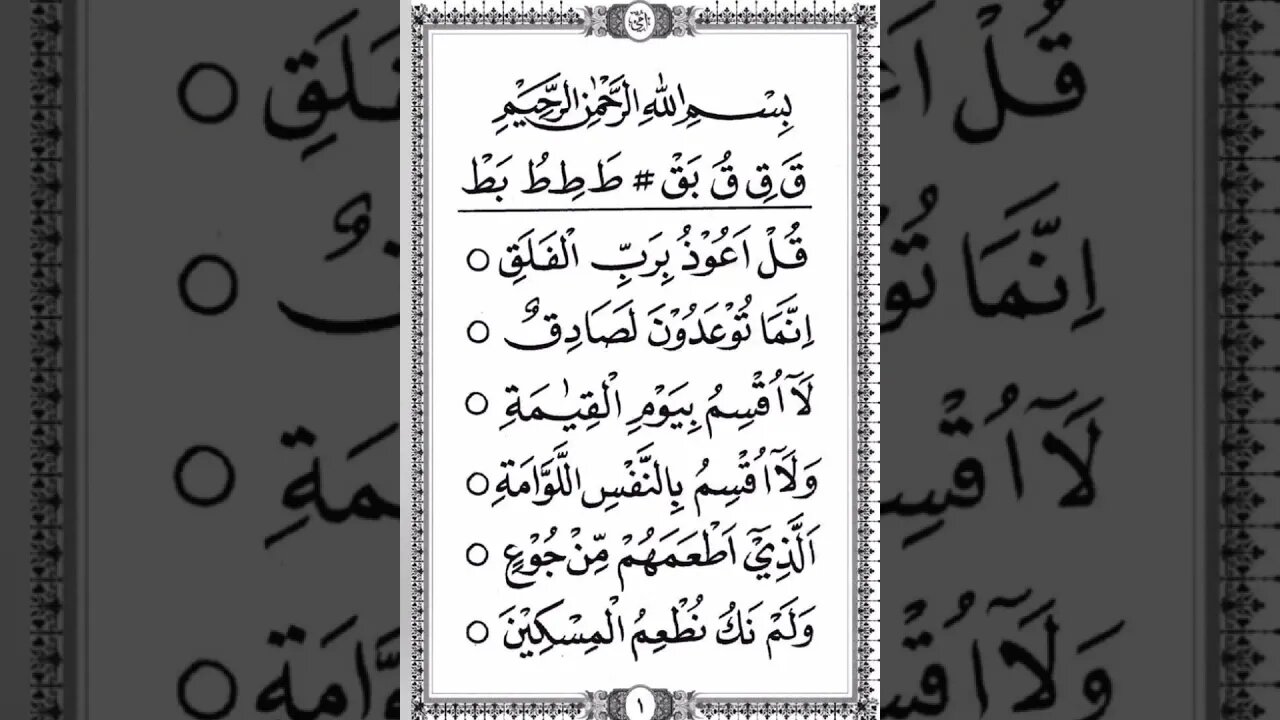 بِسْمِ اللّٰهِ الرَّحْمٰنِ الرَّحِيْمِ
قَ قِ قُ بَقْ # طَ طِ طُ بَطْ
قُلْ اَعُوْذُ بِرَبِّ الْفَلَقِ ○
اِنَّمَا تُوْعَدُوْنَ لَصَادِقٌ ○
لَآ اُقْسِمُ بِيَوْمِ الْقِيٰمَةِ ○
وَلَآ اُقْسِمُ بِالنَّفْسِ اللَّوَّامَةِ ○
اَلَّذِيْٓ اَطْعَمَهُمْ مِّنْ جُوْعٍ ○
وَلَمْ نَكُ نُطْعِمُ الْمِسْكِيْنَ ○
١